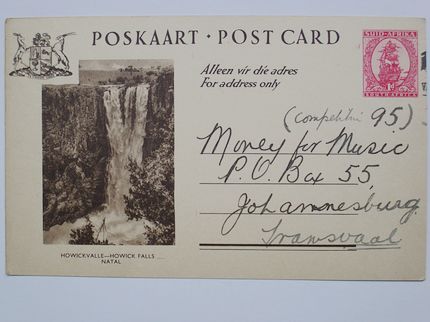 POSKAART · POST CARD
SUID-AFRIKA
1D
SOUTH AFRICA
Alleen vir die adres
For address only
(competitin 95)
Money for Music
P.O. Box 55,
Johannesburg.
Transvaal
HOWICKVALLE—HOWICK FALLS
NATAL